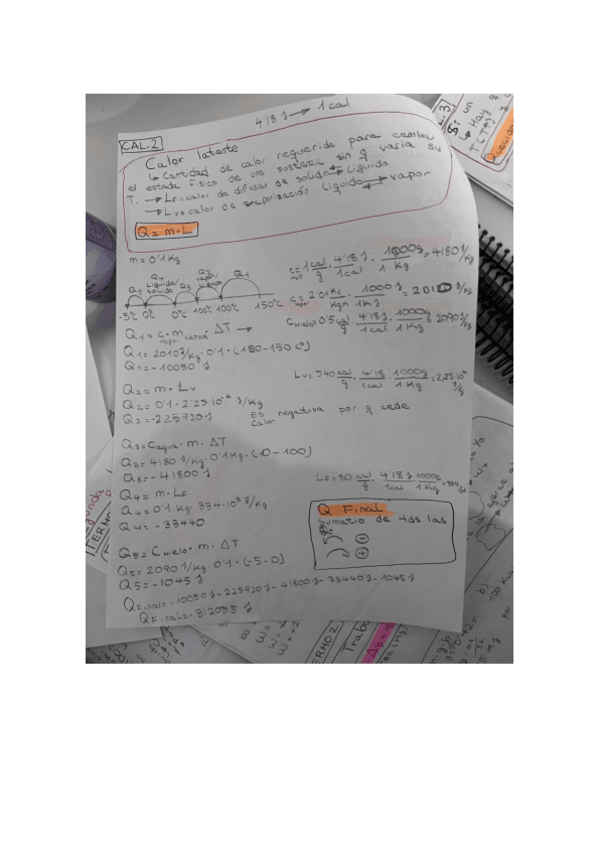 4'18 J → 1 cal
CAL.2
Calor latente
↳ Cantidad de calor requerida para cambiar
el estado físico de una sustancia sin q varía su
T. → LF = calor de difusar de solido ⇄ líquido
→ Lv = calor de vaporización líquido ⇄ vapor
Q = m · L
m = 0'1 Kg
Q5 Q4 líquido/solido Q3 Q2 Q1
-5ºC 0ºC 0ºC 100ºC 100ºC 150ºC
c = 1 cal/g · 4'18 J/1 cal · 1000g/1 Kg = 4180 J/Kg
c = 2'01 KJ/KgK · 1000 J/1 KJ = 2010 J/Kg
CHielo = 0'5 cal/g · 4'18 J/1 cal · 1000g/1 Kg = 2090 J/Kg
Q1 = c · mVAPOR · ΔT →
Q1 = 2010 J/Kg · 0'1 · (100-150 Cº)
Q1 = -10050 J
Lv = 540 cal/g · 4'18 J/1 cal · 1000g/1 Kg
Q2 = m · Lv
Q2 = 0'1 · 2'25 J/Kg
Q2 = -225720 J
Es calor negativa por q cede
Q3 = Cagua · m · ΔT
Q3 = 4180 J/Kg · 0'1 Kg · (0-100)
Q3 = -41800 J
LF = 80 cal/g · 4'18 J/1 cal · 1000g
Q4 = m · LF
Q4 = 0'1 Kg · 334·10³ J/Kg
Q4 = -33440
Q Final
Sumatio de tds las
Q
⊖
⊕
Q5 = CHielo · m · ΔT
Q5 = 2090 J/Kg · 0'1 · (-5-0)
Q5 = -1045 J
QFinal = -10050 J - 225720 J - 41800 J - 33440 J - 1045 J
QFinal = -312055 J